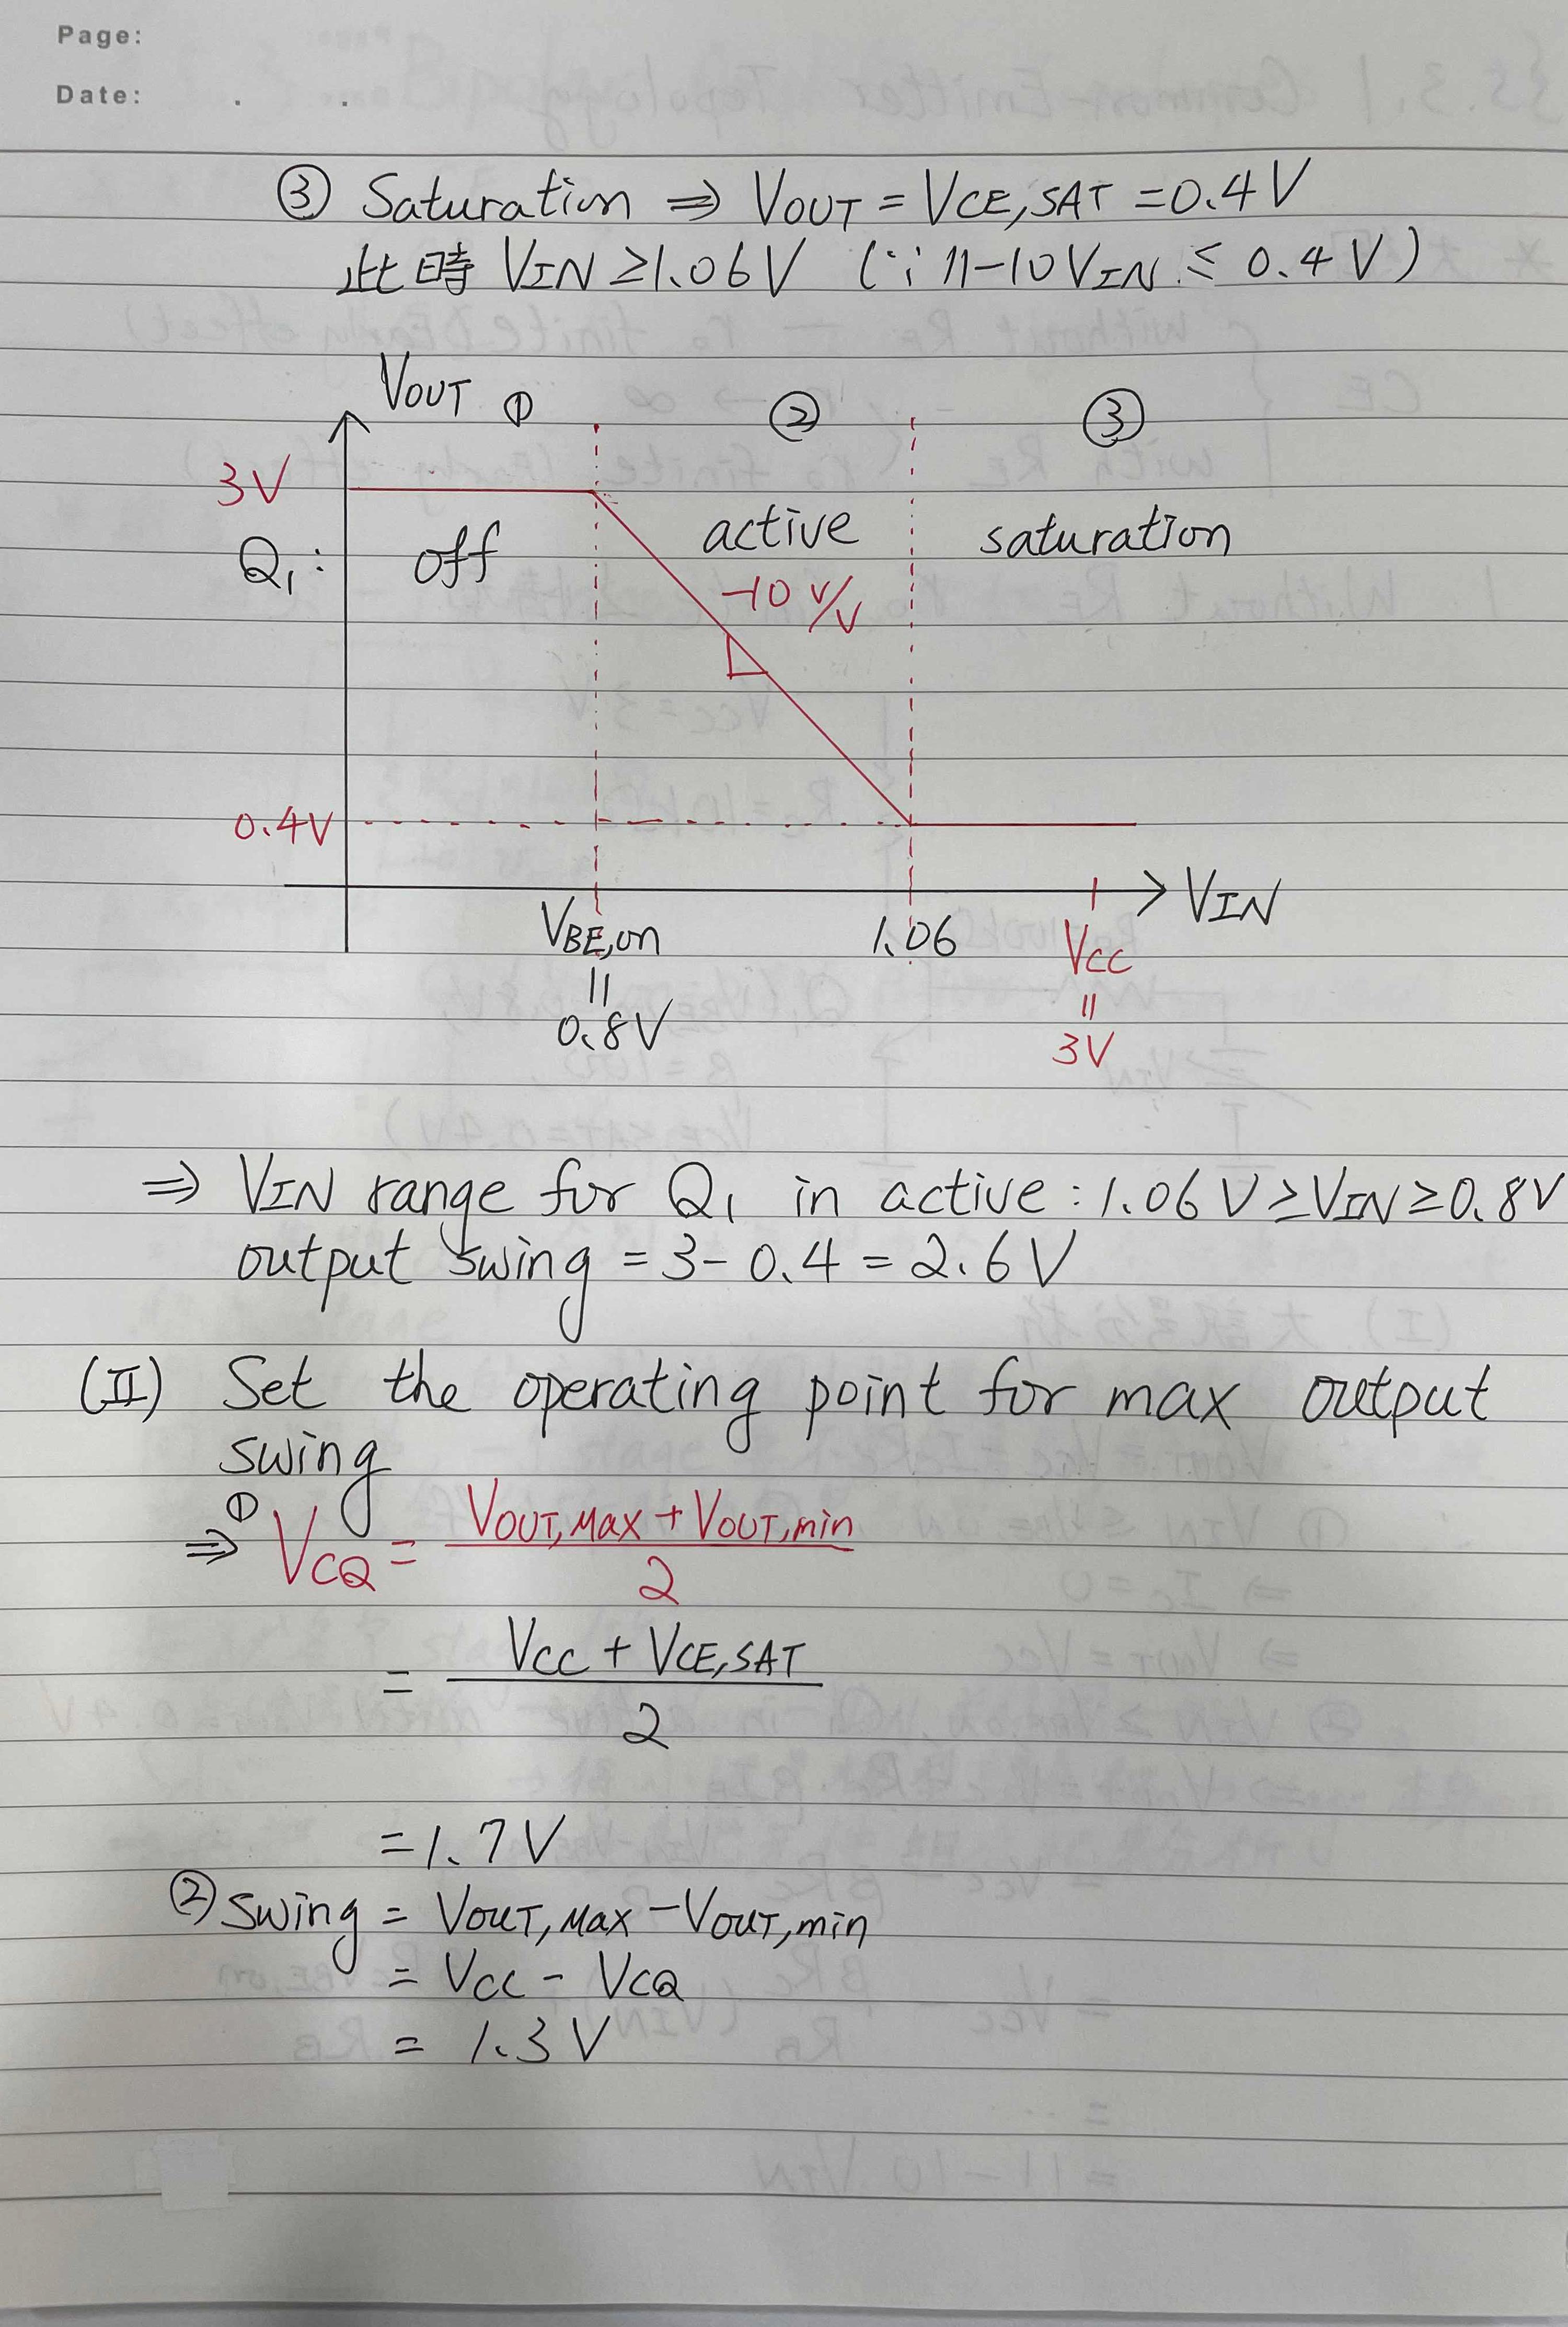 Page:
Date: . .
③ Saturation ⇒ VOUT = VCE,SAT = 0.4V
此時 VIN ≥ 1.06V (∵ 11-10VIN ≤ 0.4V)
VOUT ① ② ③
3V
Q1: off active saturation
-10 V/V
0.4V
VIN
VBE,on 1.06 VCC
= =
0.8V 3V
⇒ VIN range for Q1 in active: 1.06V ≥ VIN ≥ 0.8V
output swing = 3-0.4 = 2.6V
(II) Set the operating point for max output
swing
⇒ ① VCQ = (VOUT,Max + VOUT,min) / 2
= (VCC + VCE,SAT) / 2
= 1.7V
② swing = VOUT,Max - VOUT,min
= VCC - VCQ
= 1.3V